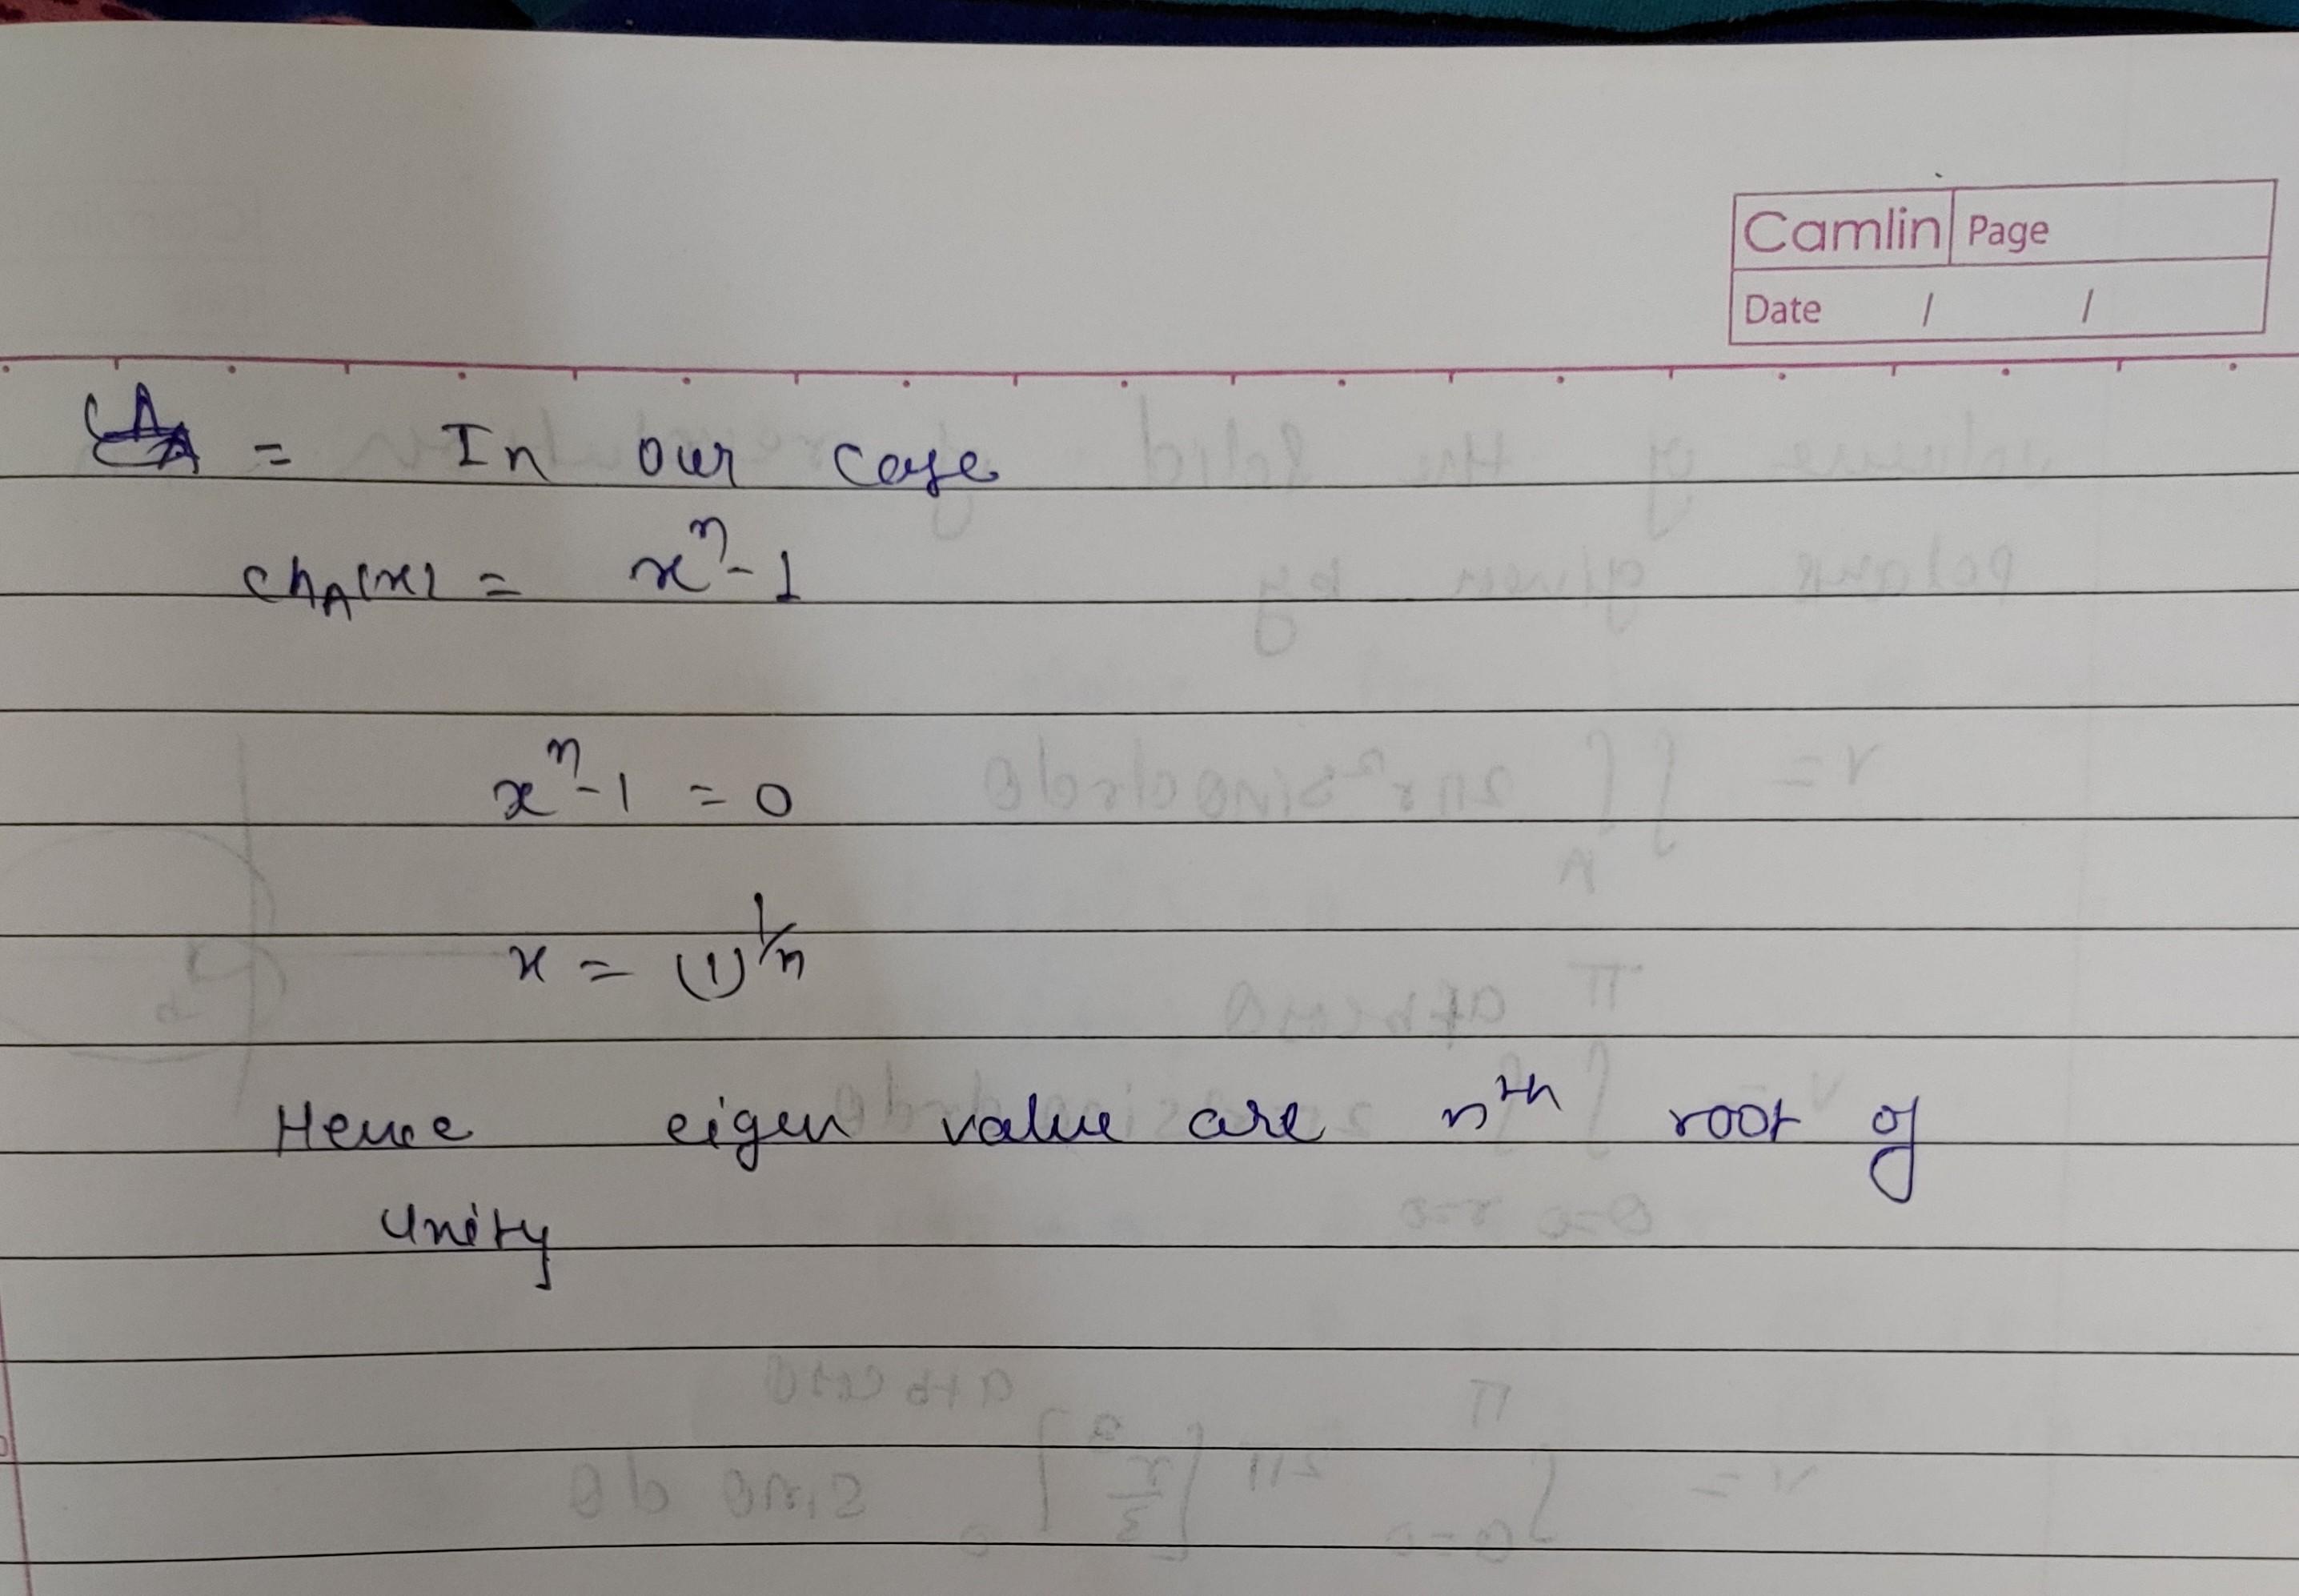 Camlin Page
Date / /
= In our case
ChA(x) = xⁿ-1
xⁿ-1 = 0
x = (1)^1/n
Hence eigen value are nth root of
unity